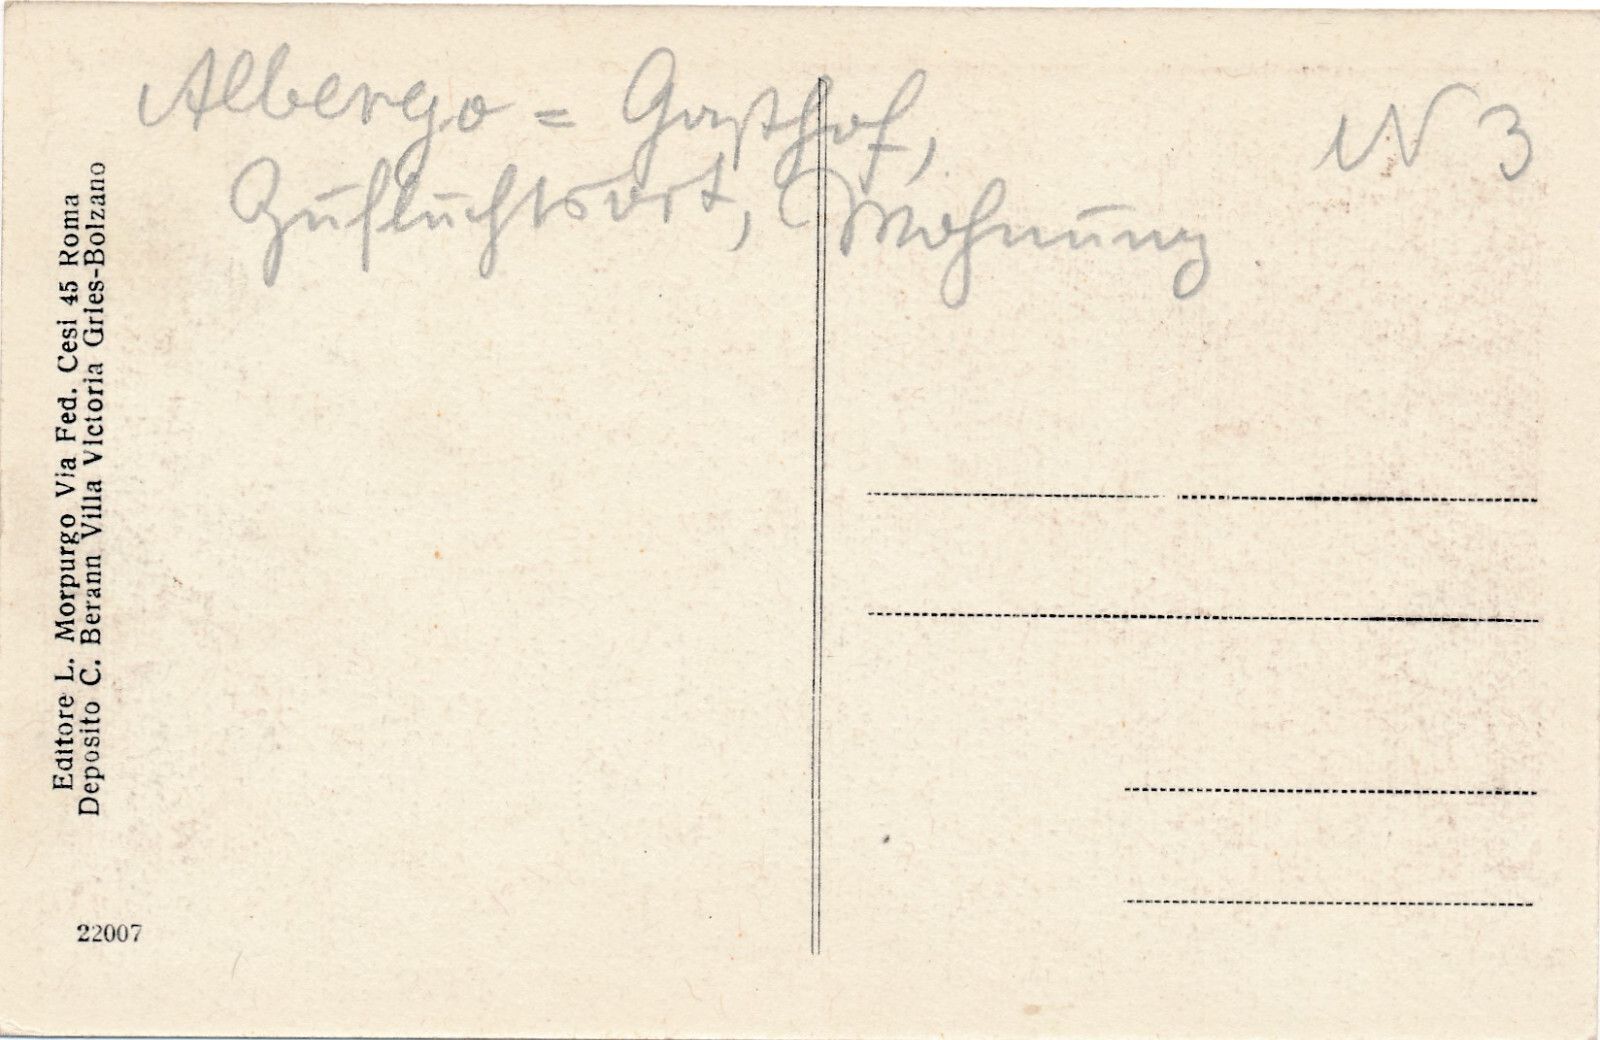 Albergo = Gasthof,
Zufluchtsort, Wohnung
N 3
Editore L. Morpurgo Via Fed. Cesi 45 Roma
Deposito C. Berann Villa Victoria Gries-Bolzano
22007